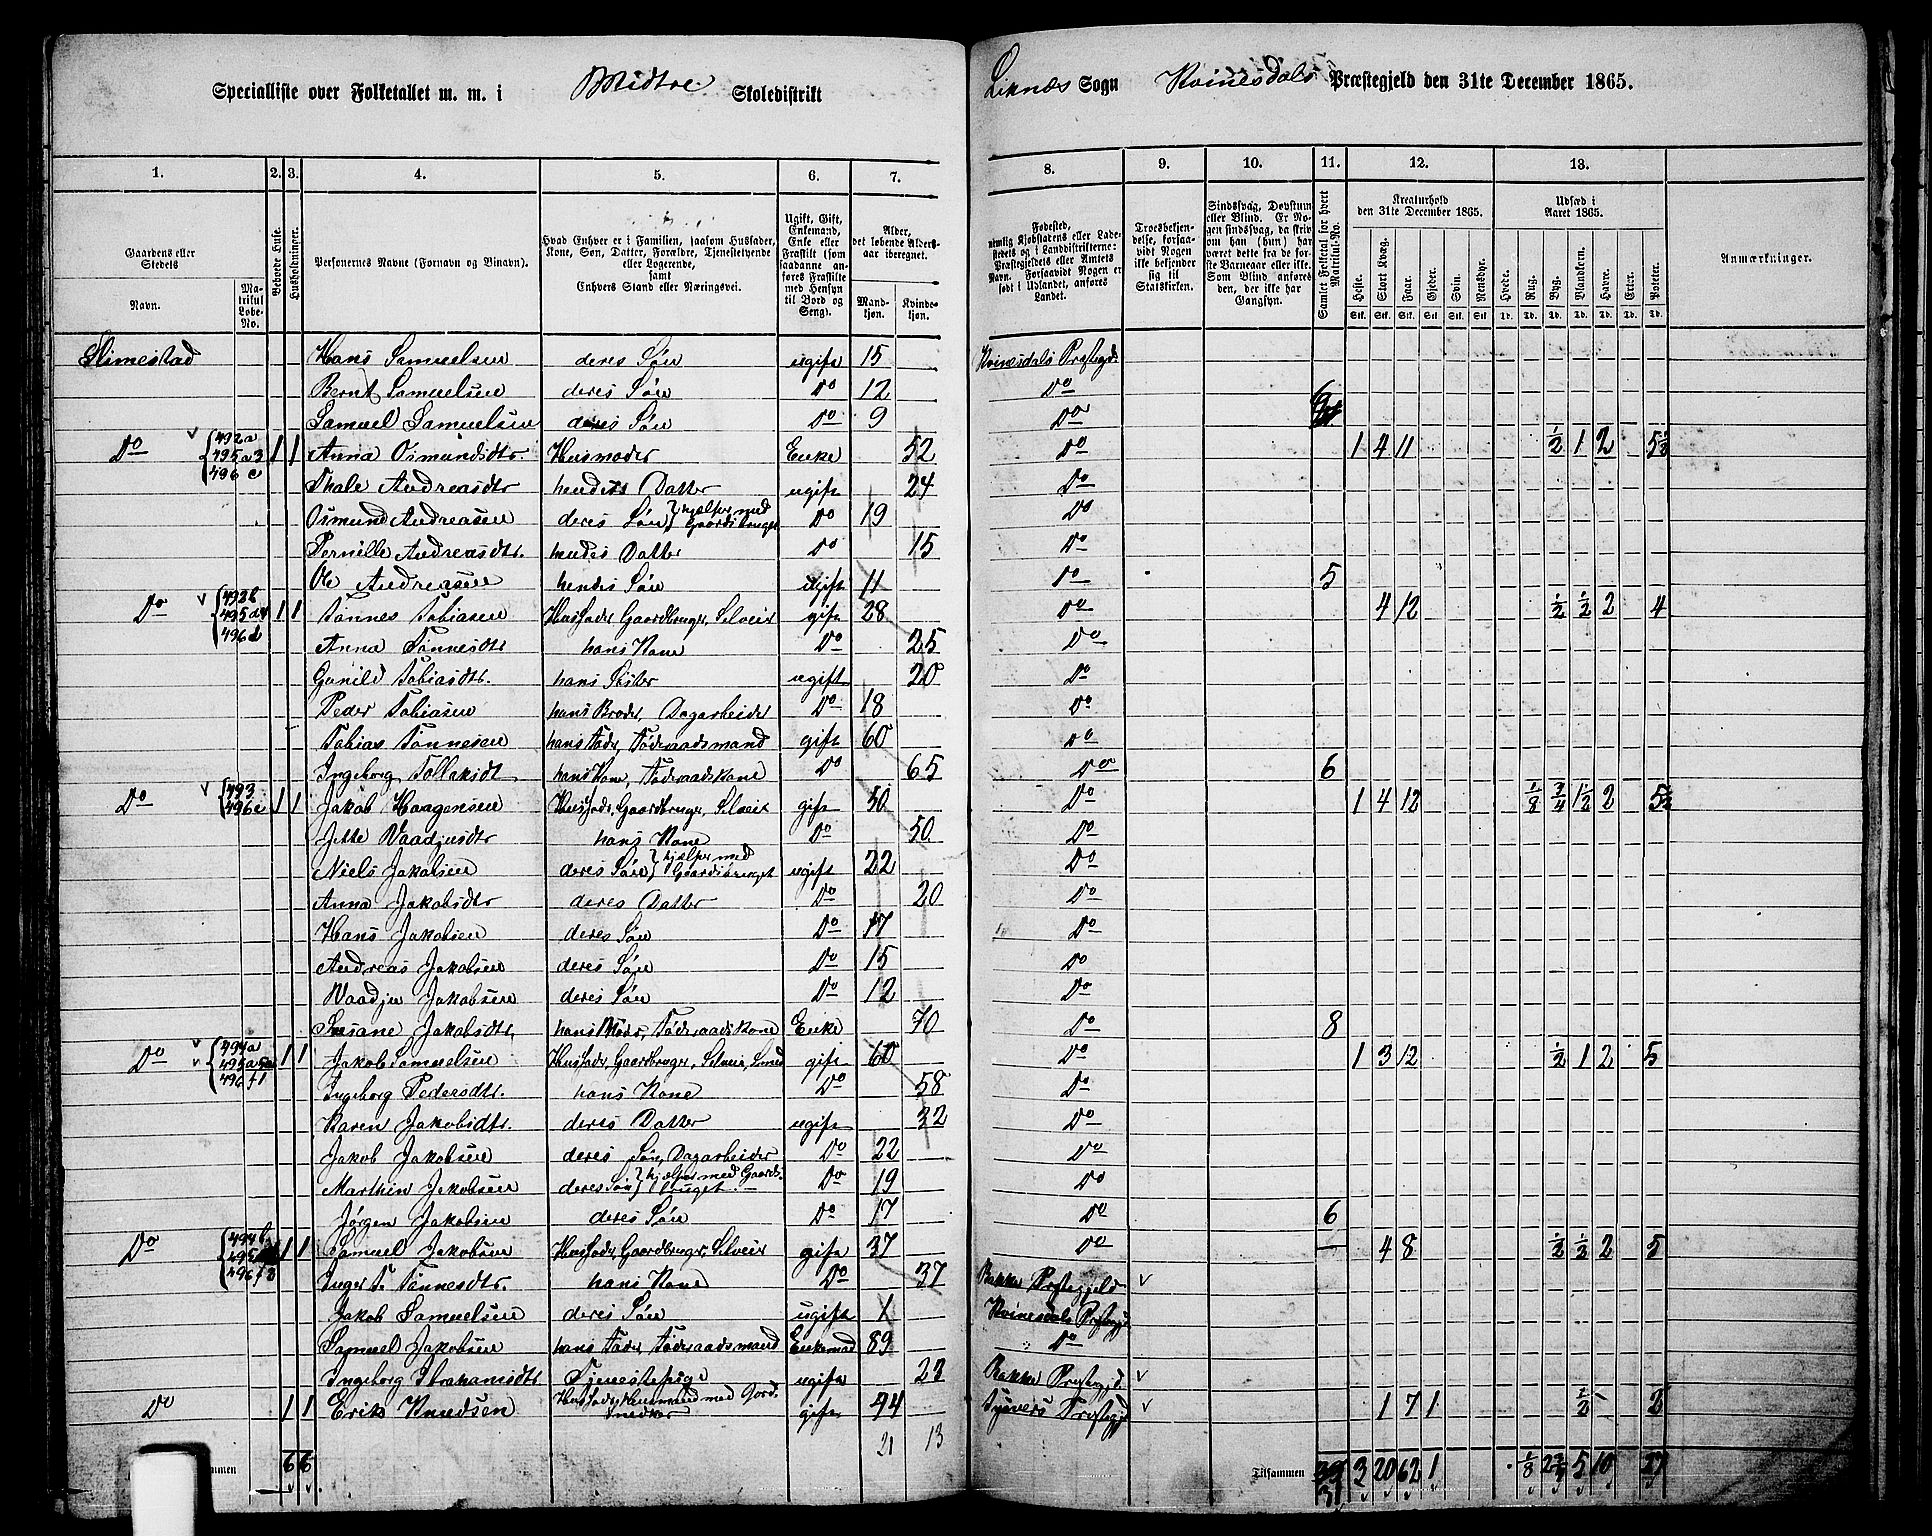 Specialliste over Folketallet m. m. i Midtre Skoledistrikt
Liknæs Sogn Kvinesdals Præstegjeld den 31te December 1865.
1. 2. 3. 4. 5. 6. 7. 8. 9. 10. 11. 12. 13.
Gaardens eller Stedets
Navn.
Matrikul Løbe-No.
Beboede Huse.
Husholdninger.
Personernes Navne (Fornavn og Vinavn).
Hvad Enhver er i Familien, saasom Husfader, Kone, Søn, Datter, Forældre, Tjenestetyende eller Logerende, samt Enhvers Stand eller Næringsvei.
Ugift, Gift, Enkemand, Enke eller Fraskilt (som saadanne anføres de Fraskilte med Hensyn til Bord og Seng).
Alder, det løbende Alders-aar iberegnet.
Mand-kjøn.
Kvinde-kjøn.
Fødested,
Troesbekjendelse, forsaavidt Nogen ikke bekjender sig til Statskirken.
Samlet Folketal for hvert Matrikul-No.
Kreaturhold den 31te December 1865.
Heste. Stort Kvæg. Faar. Gjeder. Svin. Rensdyr.
Udsæd i Aaret 1865.
Hvede. Rug. Byg. Blandkorn. Havre. Erter. Poteter.
Anmærkninger.
Slimestad Hans Samuelsen deres Søn ugift 15 Kvinesdals Prstegd.
Bernt Samuelsen deres Søn Do 12 Do
Samuel Samuelsen deres Søn Do 9 Do
Do 492a 495a3 496c 1 1 Anna Osmundsdtr. Husmoder Enke 52 Do 1 4 11 ½ 1 2 5½
Thale Andreasdtr hendes Datter ugift 24 Do
Osmund Andreasen deres Søn hjælper med Gaardsbruget Do 19 Do
Pernille Andreasdtr. hendes Datter Do 15 Do
Ole Andreasen hendes Søn ugift 11 Do 5
Do 492b 495a4 496d 1 1 Tønnes Tobiasen Husfader, Gaardbruger, Selveier gift 28 Do 4 12 ½ ½ 2 4
Anna Tønnesdtr hans Kone Do 25 Do
Gunild Tobiasdtr. hans Søster ugift 20 Do
Peder Tobiasen hans Broder, Dagarbeider Do 18 Do
Tobias Tønnesen hans Fader, Føderaadsmand gift 60 Do
Ingeborg Tollaksdt hans Kone, Føderaadskone Do 65 Do 6
Do 493 496e 1 1 Jakob Haagensen Husfader, Gaardbruger, Selveier gift 50 Do 1 4 12 ⅛ ¾ 1½ 2 5½
Jette Vaadjusdtr hans Kone Do 50 Do
Niels Jakobsen deres Søn hjælper med Gaardsbruget ugift 22 Do
Anna Jakobsdtr deres Datter Do 20 Do
Hans Jakobsen deres Søn Do 17 Do
Andreas Jakobsen deres Søn Do 15 Do
Vaadju Jakobsen deres Søn Do 12 Do
Susane Jakobsdtr. hans Moder, Føderaadskone Enke 70 Do 8
Do 494a 496f1 1 1 Jakob Samuelsen Husfader, Gaardbruger, Selveier, Smed gift 60 Do 1 3 12 ½ 1 2 5
Ingeborg Pedersdtr. hans Kone Do 58 Do
Karen Jakobsdtr. deres Datter ugift 32 Do
Jakob Jakobsen deres Søn, Dagarbeider Do 22 Do
Marthin Jakobsen deres Søn hjælper med Gaardsbruget Do 19 Do
Jørgen Jakobsen deres Søn Do 17 Do 6
Do 494b 496f2 1 1 Samuel Jakobsen Husfader, Gaardbruger, Selveier gift 37 Do 4 8 ½ ½ 2 5
Inger T. Tønnesdtr. hans Kone Do 37 Bakke Prstegjeld
Jakob Samuelsen deres Søn ugift 1 Kvinesdals Prstegjd
Samuel Jakobsen hans Fader, Føderaadsmand Enkemand 89 Do
Ingeborg Abrahamsdtr. Tjenestepige ugift 23 Bakke Prstegjd.
Do 1 1 Erik Knudsen Husfader, Husmand med Jord. Snedker gift 44 Prstegjd 1 7 1 ½ 2
21 13
6 6
Tilsammen 3 20 62 1 ⅛ 2¾ 5 10 27